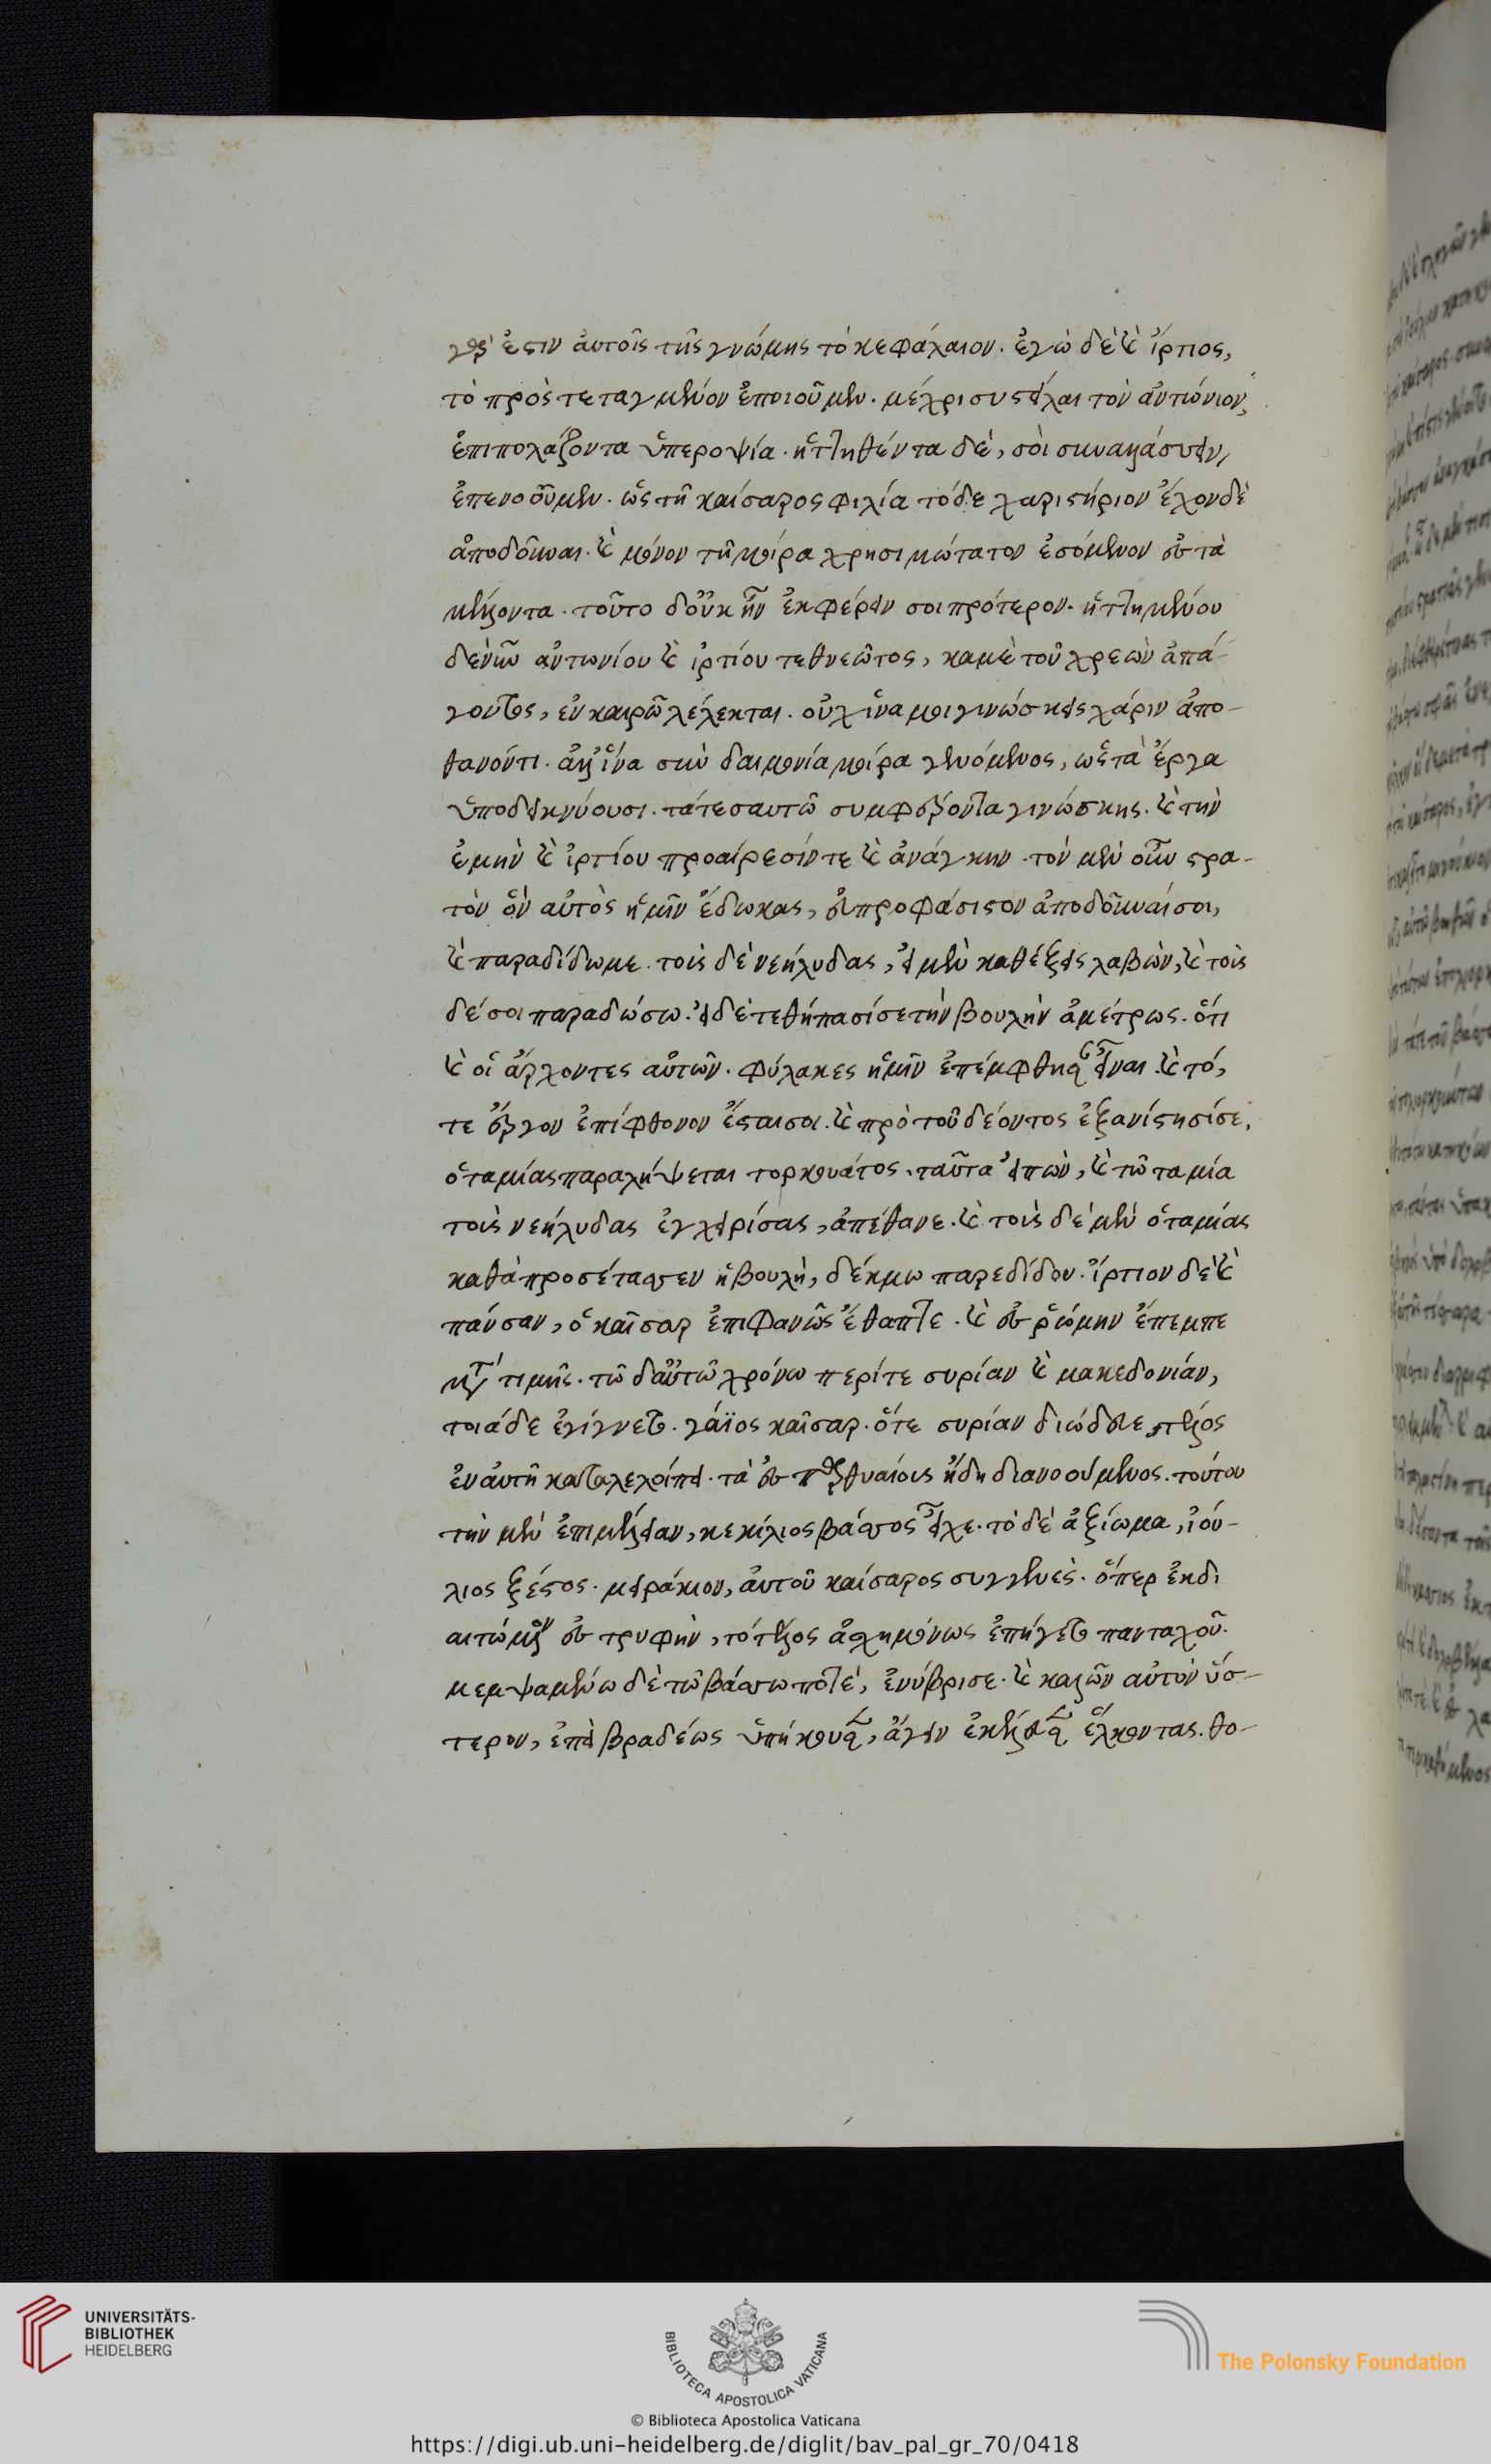 γάρ ἐστιν αὐτοῖς τῆς γνώμης τὸ κεφάλαιον. ἐγὼ δὲ καὶ ἵρτιος,
τὸ πρὸστεταγμένον ἐποιοῦμεν. μέχρι συστεῖλαι τὸν ἀντώνιον,
ἐπιπολάζοντα ὑπεροψία. ἡττηθέντα δὲ, σοὶ συναλλάσσειν,
ἐπενοοῦμεν. ὡς τῆ καίσαρος φιλία τόδε χαριστήριον ἔχον δὲ
ἀποδοῦναι. καὶ μόνον τῆ μοίρα χρησιμώτατον ἐσόμενον ἐς τὰ
μέλλοντα. τοῦτο δοὐκ ἦν ἐκφέρειν σοι πρότερον. ἡττημένου
δὲ νῦν ἀντωνίου καὶ ἱρτίου τεθνεῶτος, καμὲ τοῦ χρεὼν ἀπά-
γοντος, ἐν καιρῶ λέλεκται. οὐχ ἵνα μοι γινώσκεις χάριν ἀπο-
θανόντι. ἀλλ' ἵνα σὺν δαιμονία μοίρα γενόμενος, ὡς τὰ ἔργα
ὑποδεικνύουσι. τά τε σαυτῶ συμφέροντα γινώσκης. καὶ τὴν
ἐμὴν καὶ ἱρτίου προαίρεσίν τε καὶ ἀνάγκην. τὸν μὲν οὖν στρα-
τὸν ὃν αὐτὸς ἡμῖν ἔδωκας, εὐπροφάσιστον ἀποδοῦναί σοι,
καὶ παραδίδωμε. τοὺς δὲ νεήλυδας, εἰ μὲν καθέξεις λαβὼν, καὶ τοὺς
δέ σοι παραδώσω. εἰ δὲ τεθήπασί σε τὴν βουλὴν ἀμέτρως. ὅτι
καὶ οἱ ἄρχοντες αὐτῶν. φύλακες ἡμῖν ἐπέμφθησαν εἶναι. καὶ τό,
τε ἔργον ἐπίφθονον ἔσται σοι. καὶ πρὸ τοῦ δέοντος ἐξανίστησί σε,
ὁ ταμίας παραλήψεται τορκουάτος. ταῦτα εἰπὼν, καὶ τῶ ταμία
τοὺς νεήλυδας ἐγχειρίσας, ἀπέθανε. καὶ τοὺς δὲ μὲν ὁ ταμίας
καθὰ προσέτασσεν ἡ βουλὴ, δέκμω παρεδίδου. ἵρτιον δὲ καὶ
πάνσαν, ὁ καῖσαρ ἐπιφανῶς ἔθαπτε. καὶ ἐς ῥώμην ἔπεμπε
μετὰ τιμῆς. τῶ δαὐτῶ χρόνω περί τε συρίαν καὶ μακεδονίαν,
τοιάδε ἐγίγνετο. γάϊος καῖσαρ. ὅτε συρίαν διώδευε, τέλος
ἐν αὐτῆ καταλελοίπει. τὰ ἐς παρθυαίους ἤδη διανοούμενος. τούτου
τὴν μὲν ἐπιμέλειαν, κεκίλιος βάσσος εἶχε. τὸ δὲ ἀξίωμα, ἰού-
λιος ξέστος. μειράκιον, αὐτοῦ καίσαρος συγγενὲς. ὅπερ ἐκδι
αιτώμενον ἐς τρυφὴν, τὸ τέλος ἀσχημόνως ἐπήγετο πανταχοῦ.
μεμψαμένω δὲ τῶ βάσσω ποτὲ, ἐνύβρισε. καὶ καλῶν αὐτὸν ὕσ-
τερον, ἐπεὶ βραδέως ὑπήκουσεν, ἄγειν ἐκέλευσεν ἕλκοντας. θο-
UNIVERSITÄTS-
BIBLIOTHEK
HEIDELBERG
BIBLIOTECA APOSTOLICA VATICANA
The Polonsky Foundation
© Biblioteca Apostolica Vaticana
https://digi.ub.uni-heidelberg.de/diglit/bav_pal_gr_70/0418